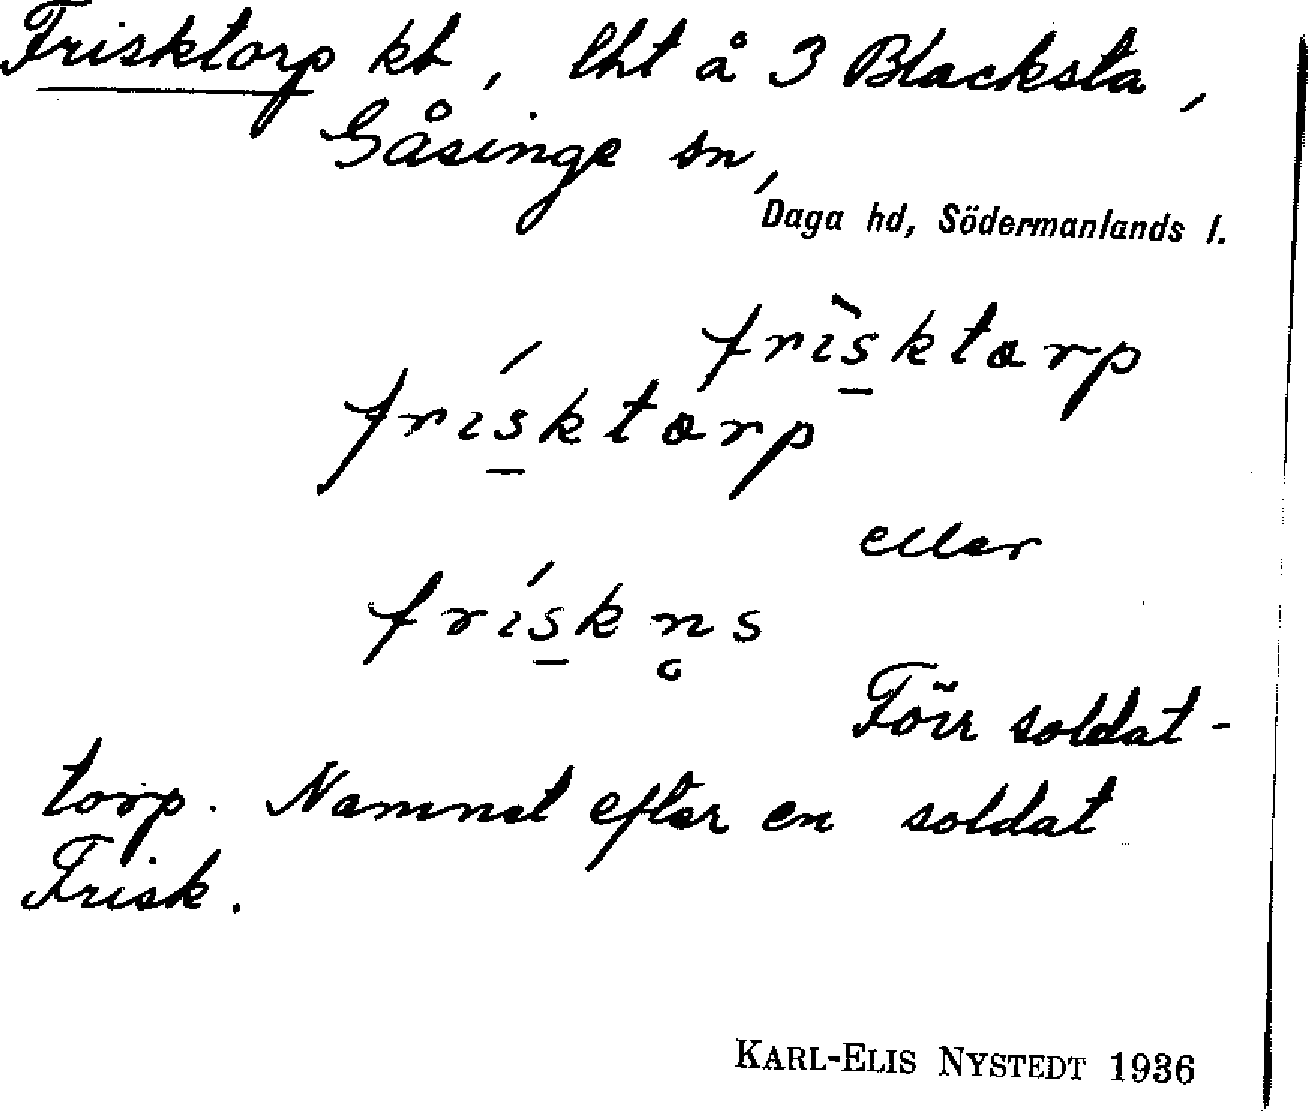 Frisktorp kt, lht å 3 Blacksta,
Gåsinge sn,
Daga hd, Södermanlands l.
frìs̠ktɑrp
frís̠ktɑrp
eller
frís̠kn̥s
Förr soldat-
torp. Namnet efter en soldat
Frisk.
KARL-ELIS NYSTEDT 1936